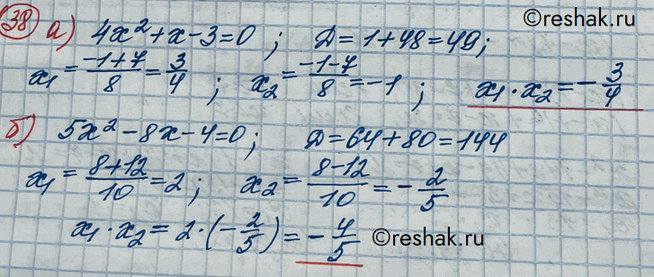 ©reshak.ru
38 а) 4x² + x - 3 = 0 ; D = 1 + 48 = 49;
x₁ = (-1+7)/8 = 3/4 ; x₂ = (-1-7)/8 = -1 ; x₁ · x₂ = - 3/4
б) 5x² - 8x - 4 = 0; D = 64 + 80 = 144
x₁ = (8+12)/10 = 2 ; x₂ = (8-12)/10 = - 2/5
x₁ · x₂ = 2 · (- 2/5) = - 4/5 ©reshak.ru